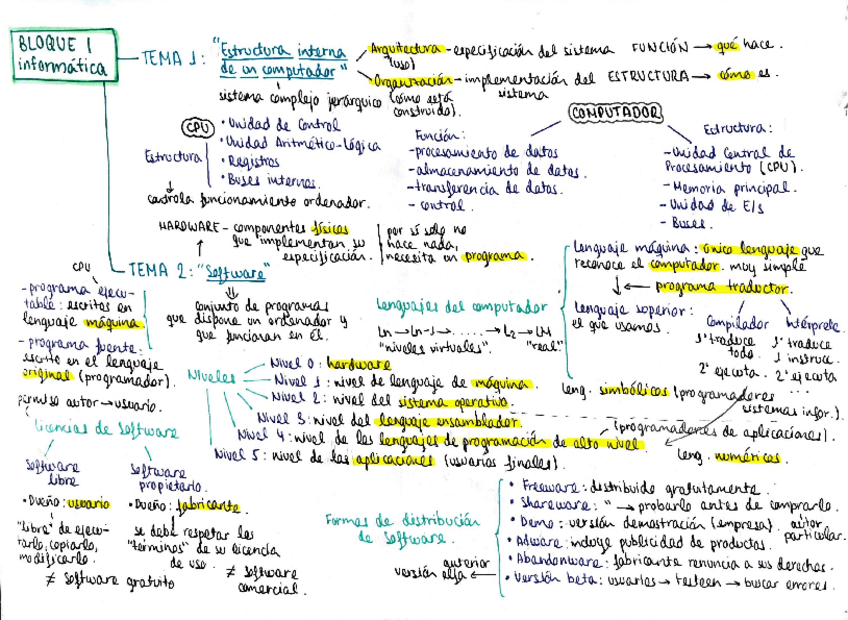 BLOQUE 1
informática
TEMA 1: "Estructura interna
de un computador"
Arquitectura - especificación del sistema FUNCIÓN → qué hace.
(uso)
Organización - implementación del ESTRUCTURA → cómo es.
sistema
(cómo está
construido).
sistema complejo jerárquico
CPU
Estructura
• Unidad de Control
• Unidad Aritmético-Lógica
• Registros
• Buses internos.
controla funcionamiento ordenador.
COMPUTADOR
Función:
- procesamiento de datos
- almacenamiento de datos.
- transferencia de datos.
- control.
Estructura:
- Unidad Central de
Procesamiento (CPU).
- Memoria principal.
- Unidad de E/S
- Buses.
HARDWARE - componentes físicos
que implementan su
especificación.
por sí solo no
hace nada,
necesita un programa.
TEMA 2: "Software"
conjunto de programas
que dispone un ordenador y
que funcionan en él.
CPU
- programa ejecu-
table: escritos en
lenguaje máquina
- programa fuente:
escrito en el lenguaje
original (programador).
Lenguajes del computador
Ln → Ln-1 → ...... → L2 → LM
"niveles virtuales". "real".
Lenguaje máquina: único lenguaje que
reconoce el computador. muy simple
programa traductor.
Lenguaje superior:
el que usamos.
Compilador
1º traduce
todo.
2º ejecuta.
Intérprete.
1º traduce
1 instruc.
2º ejecuta
...
Leng. simbólicos (programadores
sistemas infor.).
(programadores de aplicaciones).
Leng. numéricos.
Niveles
Nivel 0: hardware
Nivel 1: nivel de lenguaje de máquina.
Nivel 2: nivel del sistema operativo.
Nivel 3: nivel del lenguaje ensamblador.
Nivel 4: nivel de los lenguajes de programación de alto nivel
Nivel 5: nivel de las aplicaciones (usuarios finales).
permiso autor → usuario.
Licencias de Software
Software
libre
• Dueño: usuario
"libre" de ejecu-
tarlo, copiarlo,
modificarlo.
≠ Software gratuito
Software
propietario.
• Dueño: fabricante.
se debe respetar los
"términos" de su licencia
de uso.
≠ software
comercial.
Formas de distribución
de Software.
• Freeware: distribuido gratuitamente.
• Shareware: " → probarlo antes de comprarlo.
• Demo: versión demostración (empresa). autor
particular.
• Adware: incluye publicidad de productos.
• Abandonware: fabricante renuncia a sus derechos.
• Versión beta: usuarios → testeen → buscar errores.
anterior
versión alfa ←